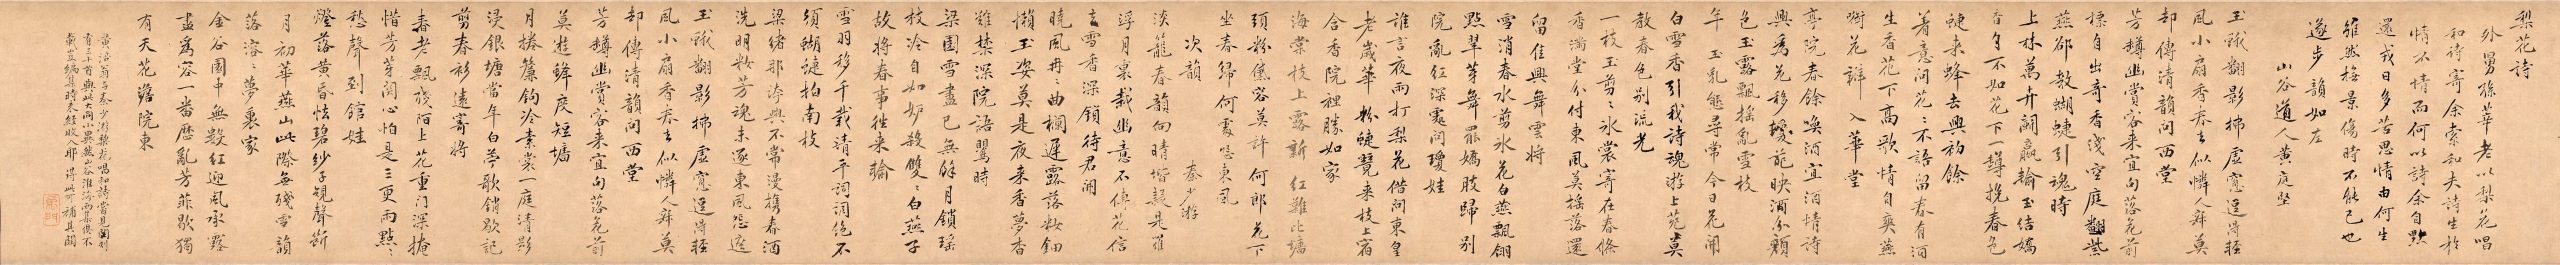 梨花詩
外舅孫莘老以梨花唱
和詩寄余索和夫詩生於
情不情而何以詩余自
還戎日多苦思情由何生
雖然極景傷時不能已也
山谷道人黃庭堅
遂步韻如左
玉蹴翻影拂虛窗逗得輕
風小扇香奈去似憐人舞莫
却傳清韻問西堂
芳樽幽賞客來宜向落花前
標自出奇香淺空庭翻紫
燕郤教蝴蝶引魂時
上林萬卉鬪贏輸玉結嬌
香自不如花下一樽挽春色
蜨來蜂去興初餘
着意問花花不語留春有酒
生香花下高歌情自爽燕
啣花辭入華堂
亭院春餘喚酒宜酒情詩
興為花移援葩映酒分顏
色玉露飄搖亂雪枝
年玉亂能尋常今日花開
白雪香引我詩魂游上苑莫
教春色別流光
一枝玉剪剪冰裳寄在春條
香滿堂分付東風莫搖落還
留佳興舞雲將
雪消春水剪水花白燕飄翎
點翠芽舞罷嬌肢歸別
院亂紅深處問瓊娃
誰言夜雨打梨花借問東皇
老歲華粉蜨驚來枝上宿
含香院裡勝如家
海棠枝上露新紅難比墻
頭粉傅容莫許何郎花下
坐春歸何處怨東風
次韻
秦少游
淡籠春韻向晴堦疑是崔
浮月裏栽幽意不傳花信
去雪香深鎖待君開
曉風冉冉曲欄遲露落妝鈿
懶玉姿莫是夜來香夢杳
難禁深院語鶯時
梁園雪盡已無餘月鎖瑤
枝冷自如妒殺雙雙白燕子
故將春事徃來輸
雪羽移千載清平詞調絕不
須蝴蜨拍南枝
梁緒那濟興不常漫攜春酒
洗明妝芳魂未逐東風怨遮
玉蹴翻影拂虛窗逗得輕
風小扇香奈去似憐人舞莫
却傳清韻問西堂
芳樽幽賞客來宜向落花前
莫遊鋒度短墻
月捲簾鉤冷素裳一庭清影
浸銀塘當年白苧歌銷歇記
剪春衫遠寄將
春老飄殘陌上花重門深掩
惜芳芽關心怕是三更雨點點
愁聲到館娃
燈落黃昏怯碧紗子規聲斷
月初華燕山此際每殘雪韻
落溶溶夢裏家
金谷園中無數紅迎風承露
盡為容一番歷亂芳菲歇獨
有天花澹院東
黃涪翁与秦少游梨花唱和詩嘗見閣刻
有三十首與此大同小異然山谷淮海兩集俱不
載豈編集時未經收入耶得此可補其闕